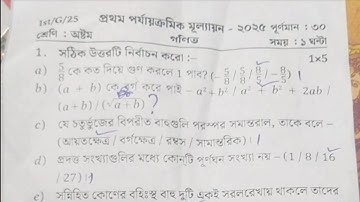 1st/G/25 প্রথম পর্যায়ক্রমিক মূল্যায়ন - ২০২৫ পূর্ণমান : ৩০
শ্রেণি : অষ্টম গণিত সময় : ১ ঘন্টা
1. সঠিক উত্তরটি নির্বাচন করো :- 1×5
a) 5/8 কে কত দিয়ে গুণ করলে 1 পাবে? (- 5/8 / 5/8 / 8/5 / - 8/5)
b) (a + b) কে বর্গ করে পাই - a² + b² / a² + b² + 2ab /
(a + b) / (√a + b)
c) যে চতুর্ভুজের বিপরীত বাহুগুলি পরস্পর সমান্তরাল, তাকে বলে -
(আয়তক্ষেত্র / বর্গক্ষেত্র / রম্বস / সামান্তরিক)।
d) প্রদত্ত সংখ্যাগুলির মধ্যে কোনটি পূর্ণঘন সংখ্যা নয় - (1 / 8 / 16
/ 27)।
e) সন্নিহিত কোণের বহিঃস্থ বাহু দুটি একই সরলরেখায় থাকলে তাদের